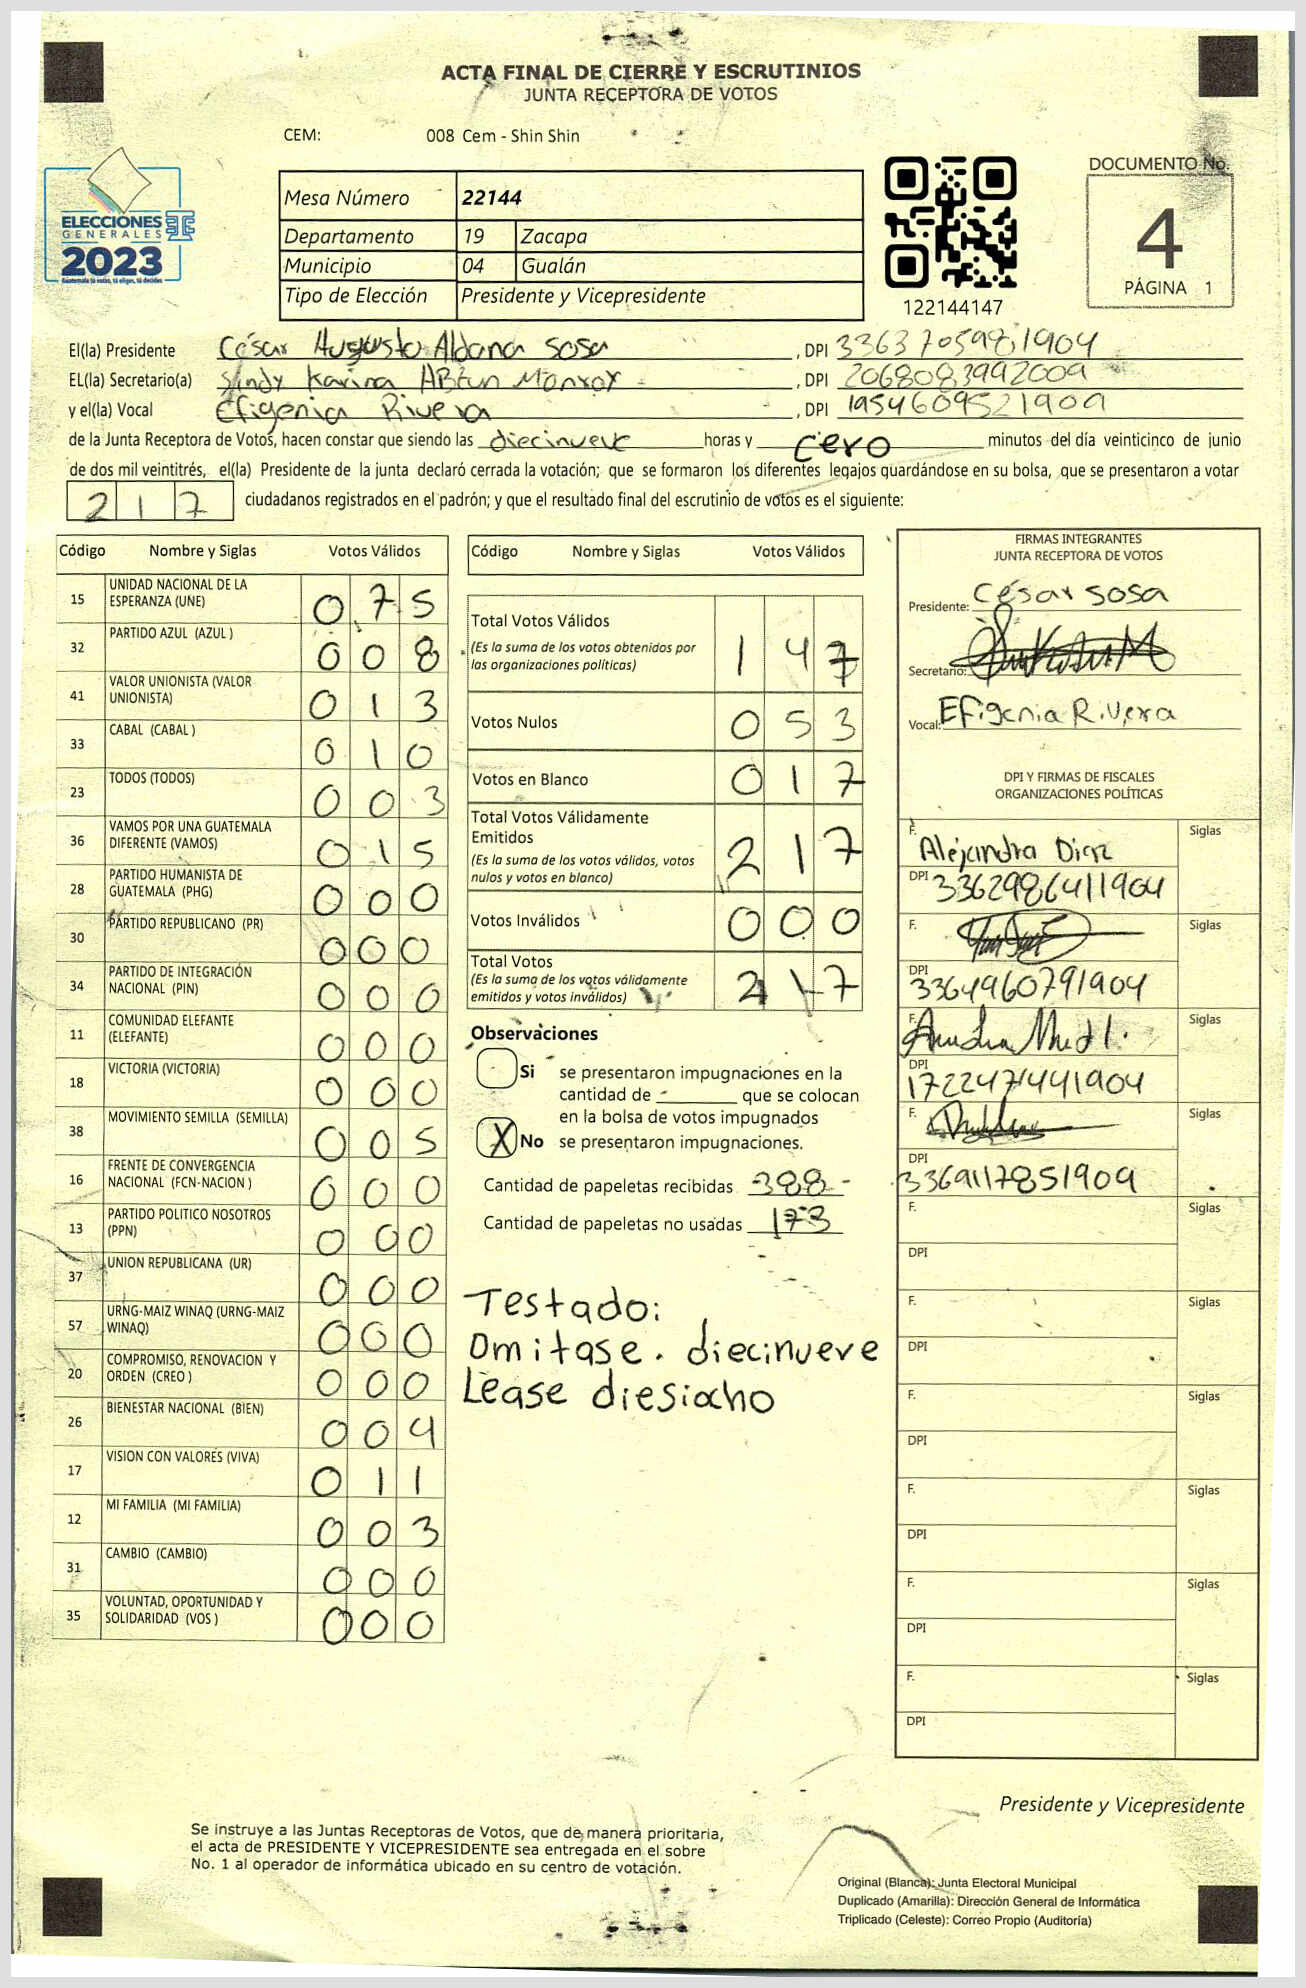 ACTA FINAL DE CIERRE Y ESCRUTINIOS
JUNTA RECEPTORA DE VOTOS
CEM: 008 Cem - Shin Shin
ELECCIONES
GENERALES
2023
Guatemala tú votas, tú eliges, tú decides
Mesa Número 22144
Departamento 19 Zacapa
Municipio 04 Gualán
Tipo de Elección Presidente y Vicepresidente
122144147
DOCUMENTO No.
4
PÁGINA 1
El(la) Presidente César Augusto Aldana Sosa, DPI 3363705981904
EL(la) Secretario(a) Sindy Karina, DPI 2068083992009
y el(la) Vocal Efigenia Rivera, DPI 1954609521909
de la Junta Receptora de Votos, hacen constar que siendo las diecinueve horas y cero minutos del día veinticinco de junio
de dos mil veintitrés, el(la) Presidente de la junta declaró cerrada la votación; que se formaron los diferentes legajos guardándose en su bolsa, que se presentaron a votar
217 ciudadanos registrados en el padrón; y que el resultado final del escrutinio de votos es el siguiente:
Código Nombre y Siglas Votos Válidos
15 UNIDAD NACIONAL DE LA ESPERANZA (UNE) 075
32 PARTIDO AZUL (AZUL ) 008
41 VALOR UNIONISTA (VALOR UNIONISTA) 013
33 CABAL (CABAL ) 010
23 TODOS (TODOS) 003
36 VAMOS POR UNA GUATEMALA DIFERENTE (VAMOS) 015
28 PARTIDO HUMANISTA DE GUATEMALA (PHG) 000
30 PARTIDO REPUBLICANO (PR) 000
34 PARTIDO DE INTEGRACIÓN NACIONAL (PIN) 000
11 COMUNIDAD ELEFANTE (ELEFANTE) 000
18 VICTORIA (VICTORIA) 000
38 MOVIMIENTO SEMILLA (SEMILLA) 005
16 FRENTE DE CONVERGENCIA NACIONAL (FCN-NACION ) 000
13 PARTIDO POLITICO NOSOTROS (PPN) 000
37 UNION REPUBLICANA (UR) 000
57 URNG-MAIZ WINAQ (URNG-MAIZ WINAQ) 000
20 COMPROMISO, RENOVACION Y ORDEN (CREO ) 000
26 BIENESTAR NACIONAL (BIEN) 004
17 VISION CON VALORES (VIVA) 011
12 MI FAMILIA (MI FAMILIA) 003
31 CAMBIO (CAMBIO) 000
35 VOLUNTAD, OPORTUNIDAD Y SOLIDARIDAD (VOS ) 000
Código Nombre y Siglas Votos Válidos
Total Votos Válidos 147
(Es la suma de los votos obtenidos por las organizaciones políticas)
Votos Nulos 053
Votos en Blanco 017
Total Votos Válidamente Emitidos 217
(Es la suma de los votos válidos, votos nulos y votos en blanco)
Votos Inválidos 000
Total Votos 217
(Es la suma de los votos válidamente emitidos y votos inválidos)
Observaciones
Si se presentaron impugnaciones en la
cantidad de - ________ que se colocan
en la bolsa de votos impugnados
X No se presentaron impugnaciones.
Cantidad de papeletas recibidas 388
Cantidad de papeletas no usadas 173
Testado:
Omitase. diecinueve
Lease diesiocho
FIRMAS INTEGRANTES
JUNTA RECEPTORA DE VOTOS
Presidente: César Sosa
Secretario:
Vocal: Efigenia Rivera
DPI Y FIRMAS DE FISCALES
ORGANIZACIONES POLÍTICAS
F. Alejandra Diaz Siglas
DPI 3362986411904
F. Siglas
DPI 3364960791904
F. Siglas
DPI 1722471441904
F. Siglas
DPI 3369117851909
F. Siglas
DPI
F. Siglas
DPI
F. Siglas
DPI
F. Siglas
DPI
F. Siglas
DPI
F. Siglas
DPI
Presidente y Vicepresidente
Se instruye a las Juntas Receptoras de Votos, que de manera prioritaria,
el acta de PRESIDENTE Y VICEPRESIDENTE sea entregada en el sobre
No. 1 al operador de informática ubicado en su centro de votación.
Original (Blanca): Junta Electoral Municipal
Duplicado (Amarilla): Dirección General de Informática
Triplicado (Celeste): Correo Propio (Auditoría)